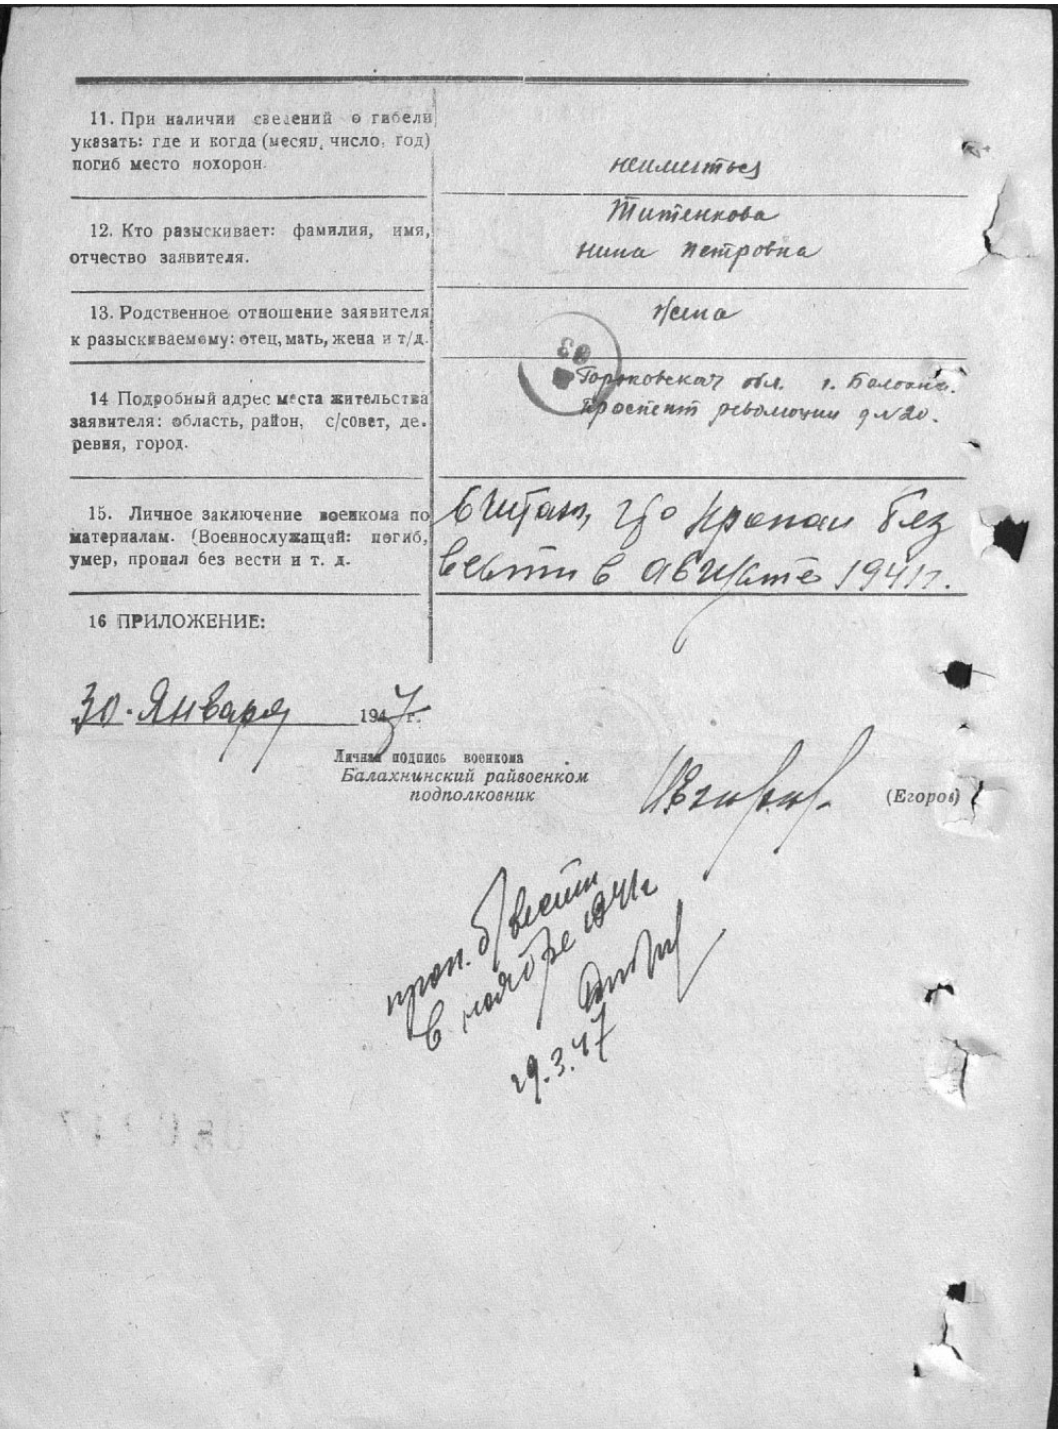 11. При наличии сведений о гибели
указать: где и когда (месяц, число, год)
погиб место похорон.
неимеиться
12. Кто разыскивает: фамилия, имя,
отчество заявителя.
Титенкова
Нина Петровна
13. Родственное отношение заявителя
к разыскиваемому: отец, мать, жена и т/д.
Жена
14 Подробный адрес места жительства
заявителя: область, район, с/совет, де-
ревня, город.
Горьковская обл. г. Балахна.
Проспект революции д №20.
15. Личное заключение военкома по
материалам. (Военнослужащий: погиб,
умер, пропал без вести и т. д.
Считаю, что пропал без
вести в августе 1941 г.
16 ПРИЛОЖЕНИЕ:
30. Января 1947 г.
Личная подпись военкома
Балахнинский райвоенком
подполковник
(Егоров)
проп. б/вести
в ноябре 1941г
29.3.47